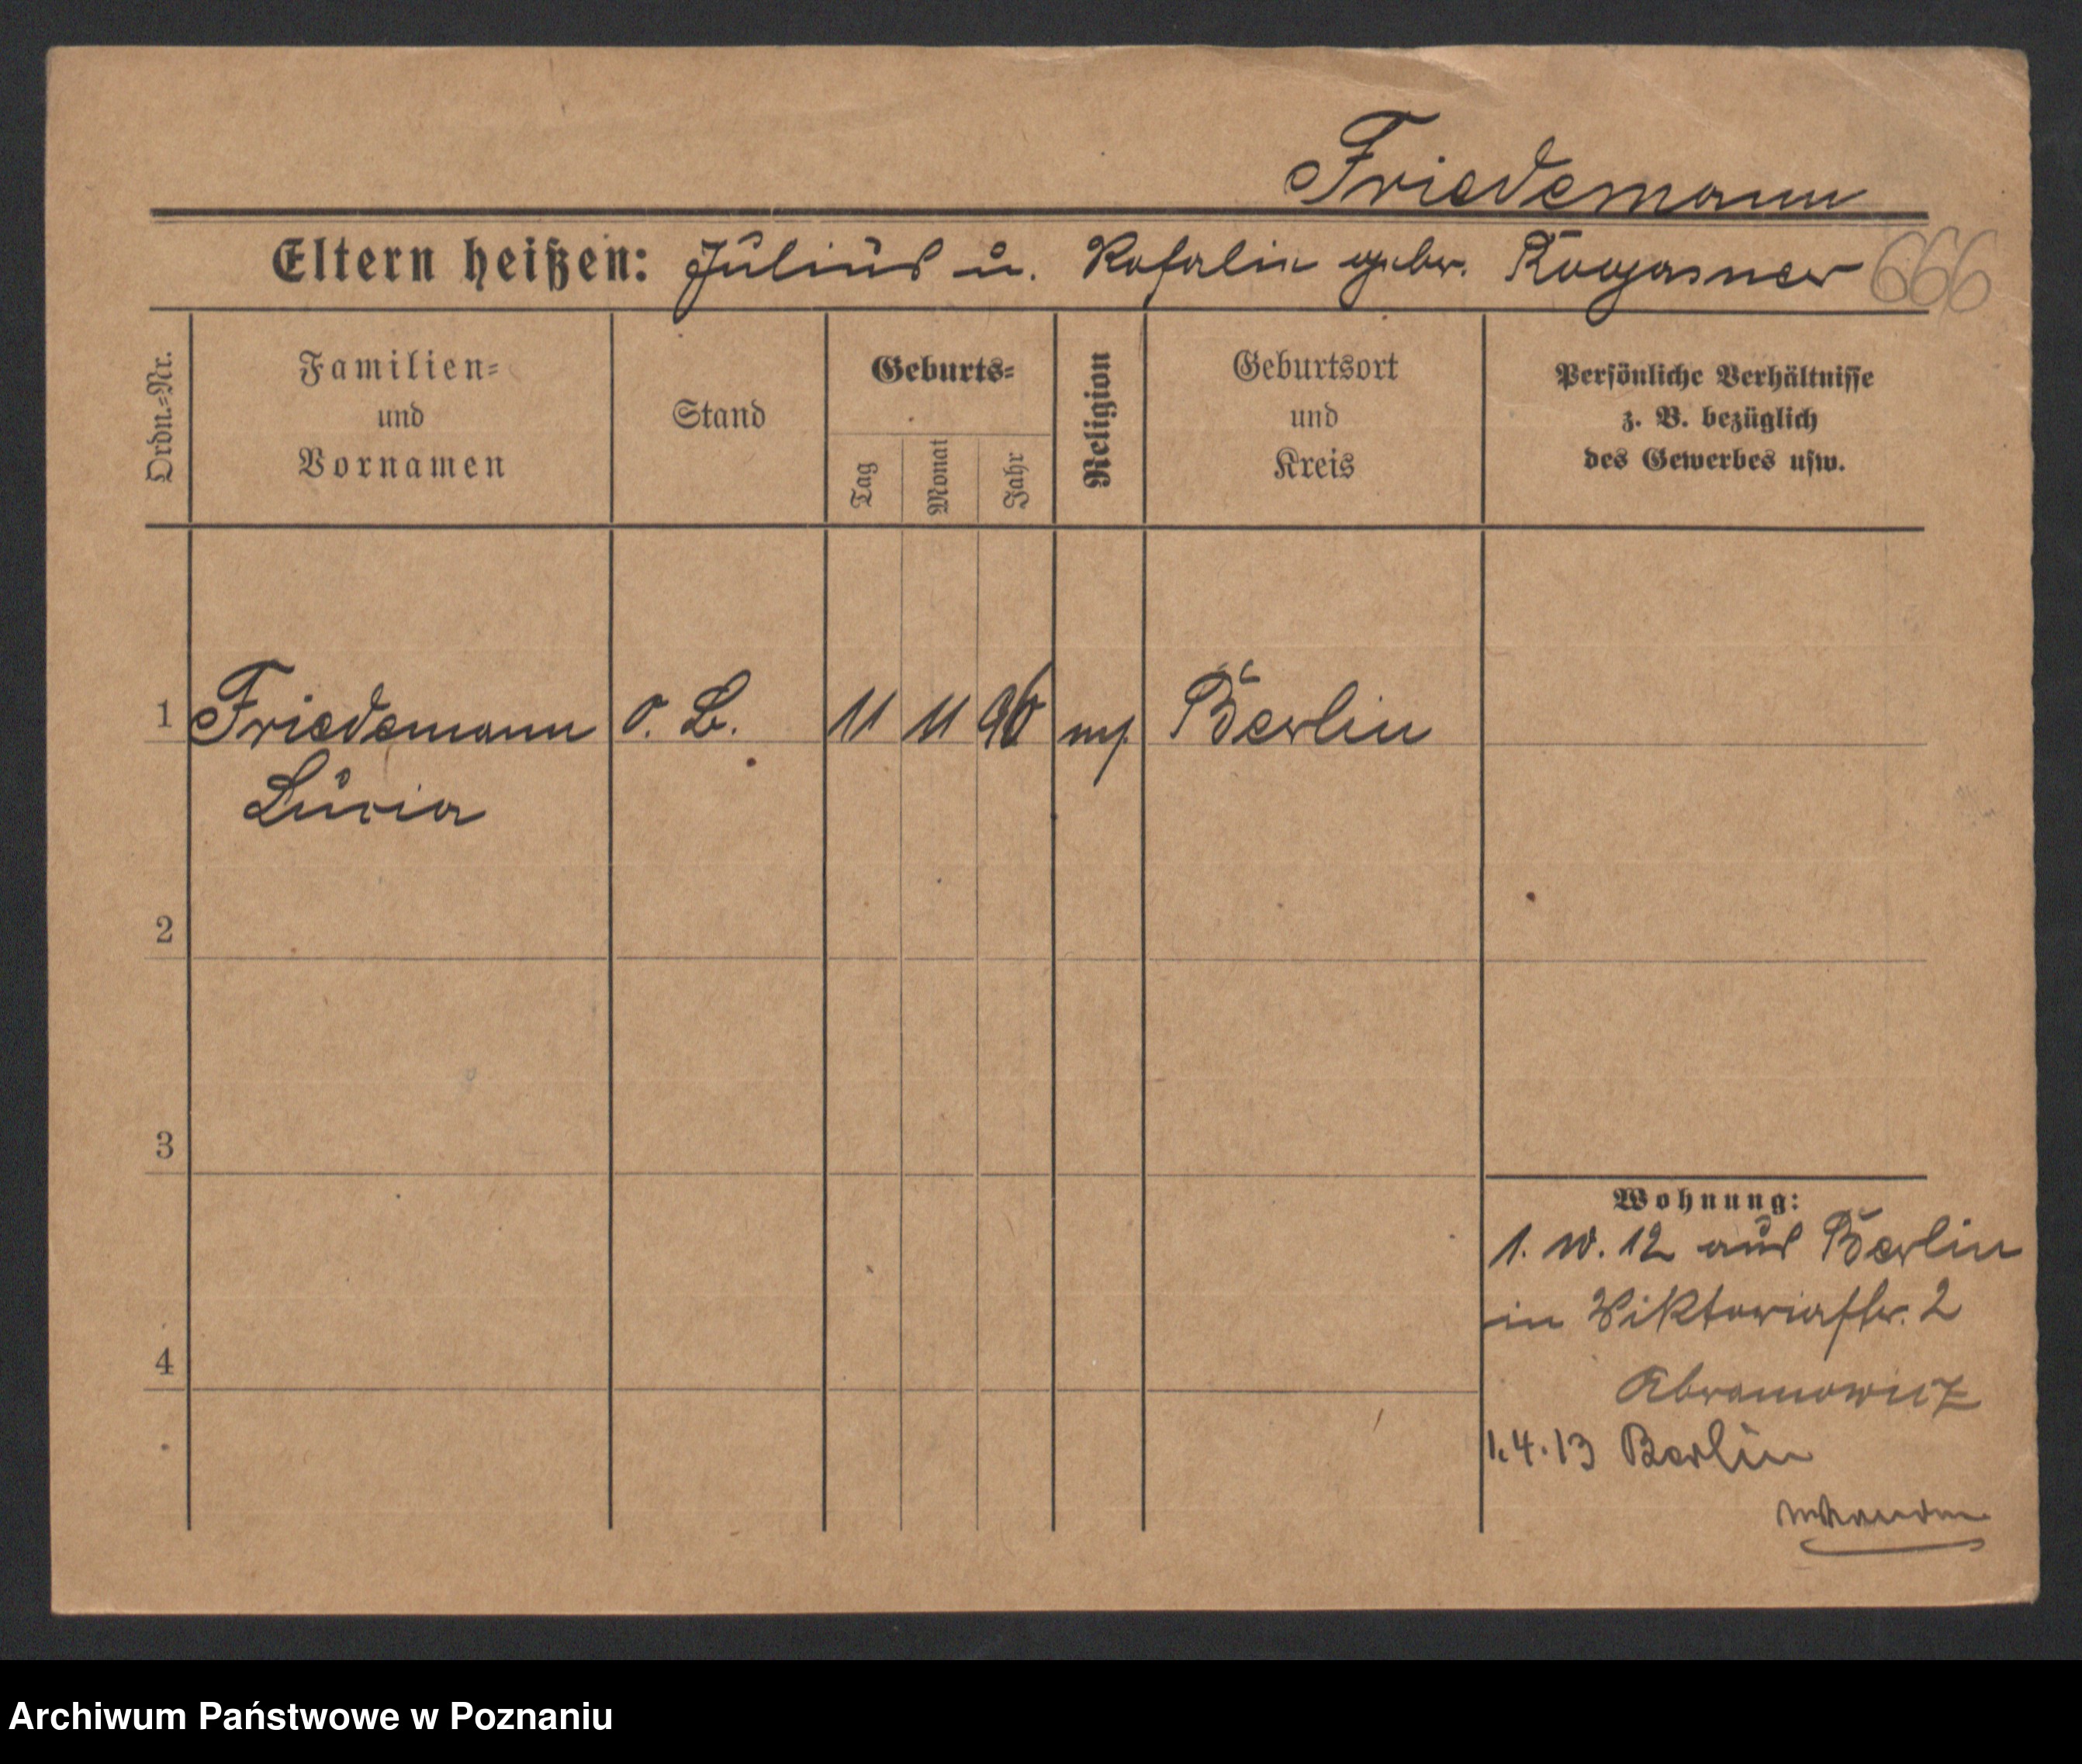 Friedemann
Eltern heißen: Julius u. Rosalie gebor. Rogasner 666
Ordn.-Nr.
Familien-
und
Vornamen
Stand
Geburts-
Tag
Monat
Jahr
Religion
Geburtsort
und
Kreis
Persönliche Verhältnisse
z. B. bezüglich
des Gewerbes usw.
1 Friedemann o. B. 11 11 96 mos. Berlin
Lucia
2
3
4
Wohnung:
1. 10. 12 aus Berlin
in Viktoriastr. 2
Abramowicz
1.4.13 Berlin
Archiwum Państwowe w Poznaniu